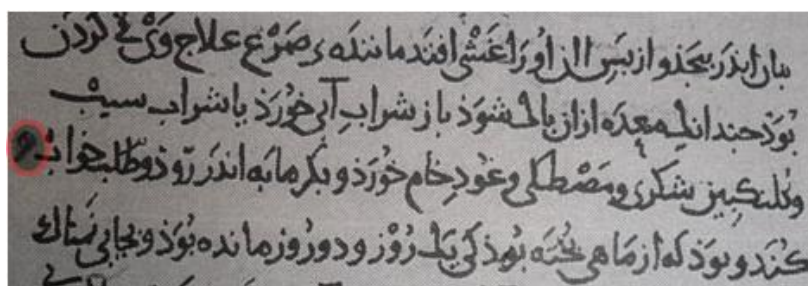 بدان اندر بیجذ و از بس ان او را غشی افتد ماننده ء صرع علاج وی قی کردن
بوذ جندانک معده از ان باک شوذ باز شراب آبی خورذ یا شراب سیب
و کلنکبین شکری و مصطکی و عود خام خورذ و بکرمابه اندر روذ و طلب خواب
کنذ و بوذ که از ماهی بخته بوذ کی یک روز و دو روز مانده بوذ و بجایی نمناک